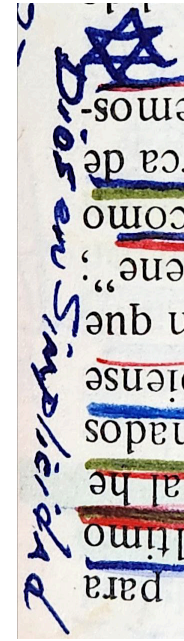 Dios en Simplicidad
para
ltimo
al he
nados
iense
n que
ene";
como
rca de
emos-